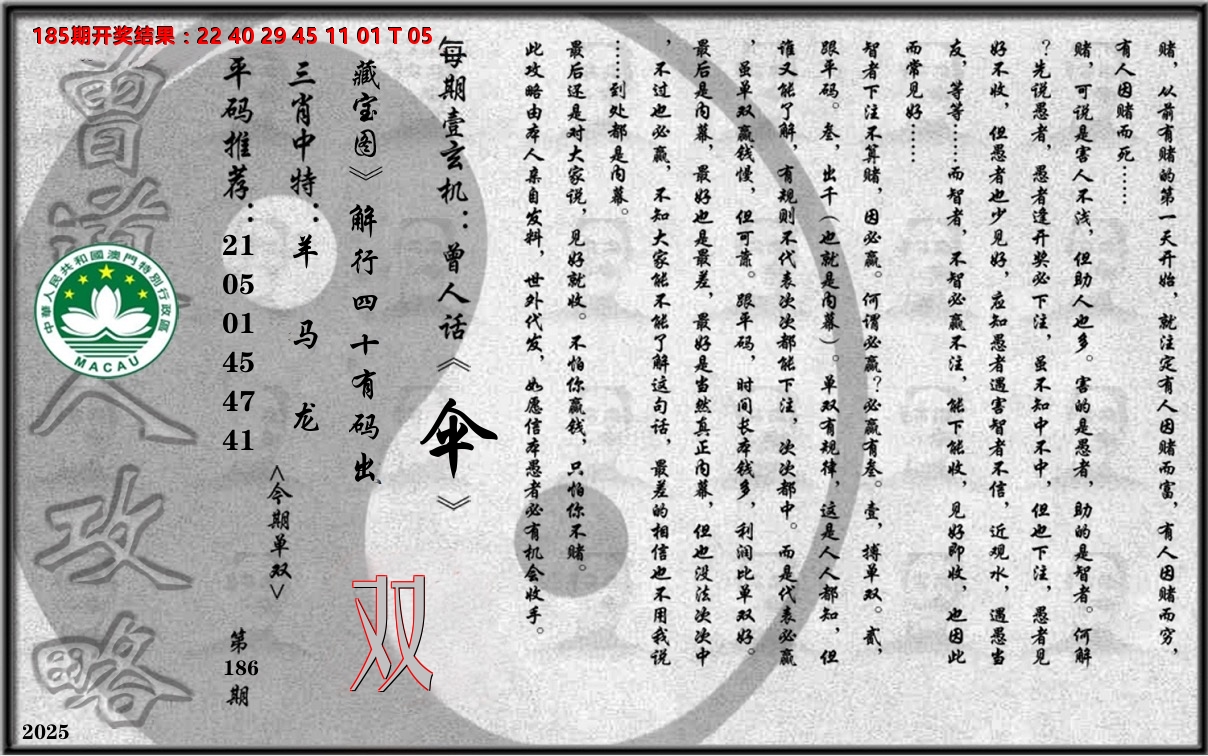 185期开奖结果：22 40 29 45 11 01 T 05
赌，从前有赌的第一天开始，就注定有人因赌而富，有人因赌而穷，
有人因赌而死……
赌，可说是害人不浅，但助人也多。害的是愚者，助的是智者。何解
？先说愚者，愚者逢开奖必下注，虽不知中不中，但也下注，愚者见
好不收，但愚者也少见好，应知愚者遇害智者不信，近观水，遇愚当
友，等等……而智者，不智必赢不注，能下能收，见好即收，也因此
而常见好……
智者下注不算赌，因必赢。何谓必赢？必赢有叁。壹，搏单双。贰，
跟平码。叁，出千（也就是内幕）。单双有规律，这是人人都知，但
谁又能了解，有规则不代表次次都能下注，次次都中。而是代表必赢
，虽单双赢钱慢，但可靠。跟平码，时间长本钱多，利润比单双好。
最后是内幕，最好也是最差，最好是当然真正内幕，但也没法次次中
，不过也必赢，不知大家能不能了解这句话，最差的相信也不用我说
……到处都是内幕。
最后还是对大家说，见好就收。不怕你赢钱，只怕你不赌。
此攻略由本人亲自发料，世外代发，如愿信本愚者必有机会收手。
每期壹玄机：曾人话《伞》
藏宝图》解行四十有码出
双
三肖中特：羊 马 龙
<今期单双>
平码推荐：21 05 01 45 47 41
第186期
曾道人攻略
中華人民共和國澳門特別行政區
MACAU
2025